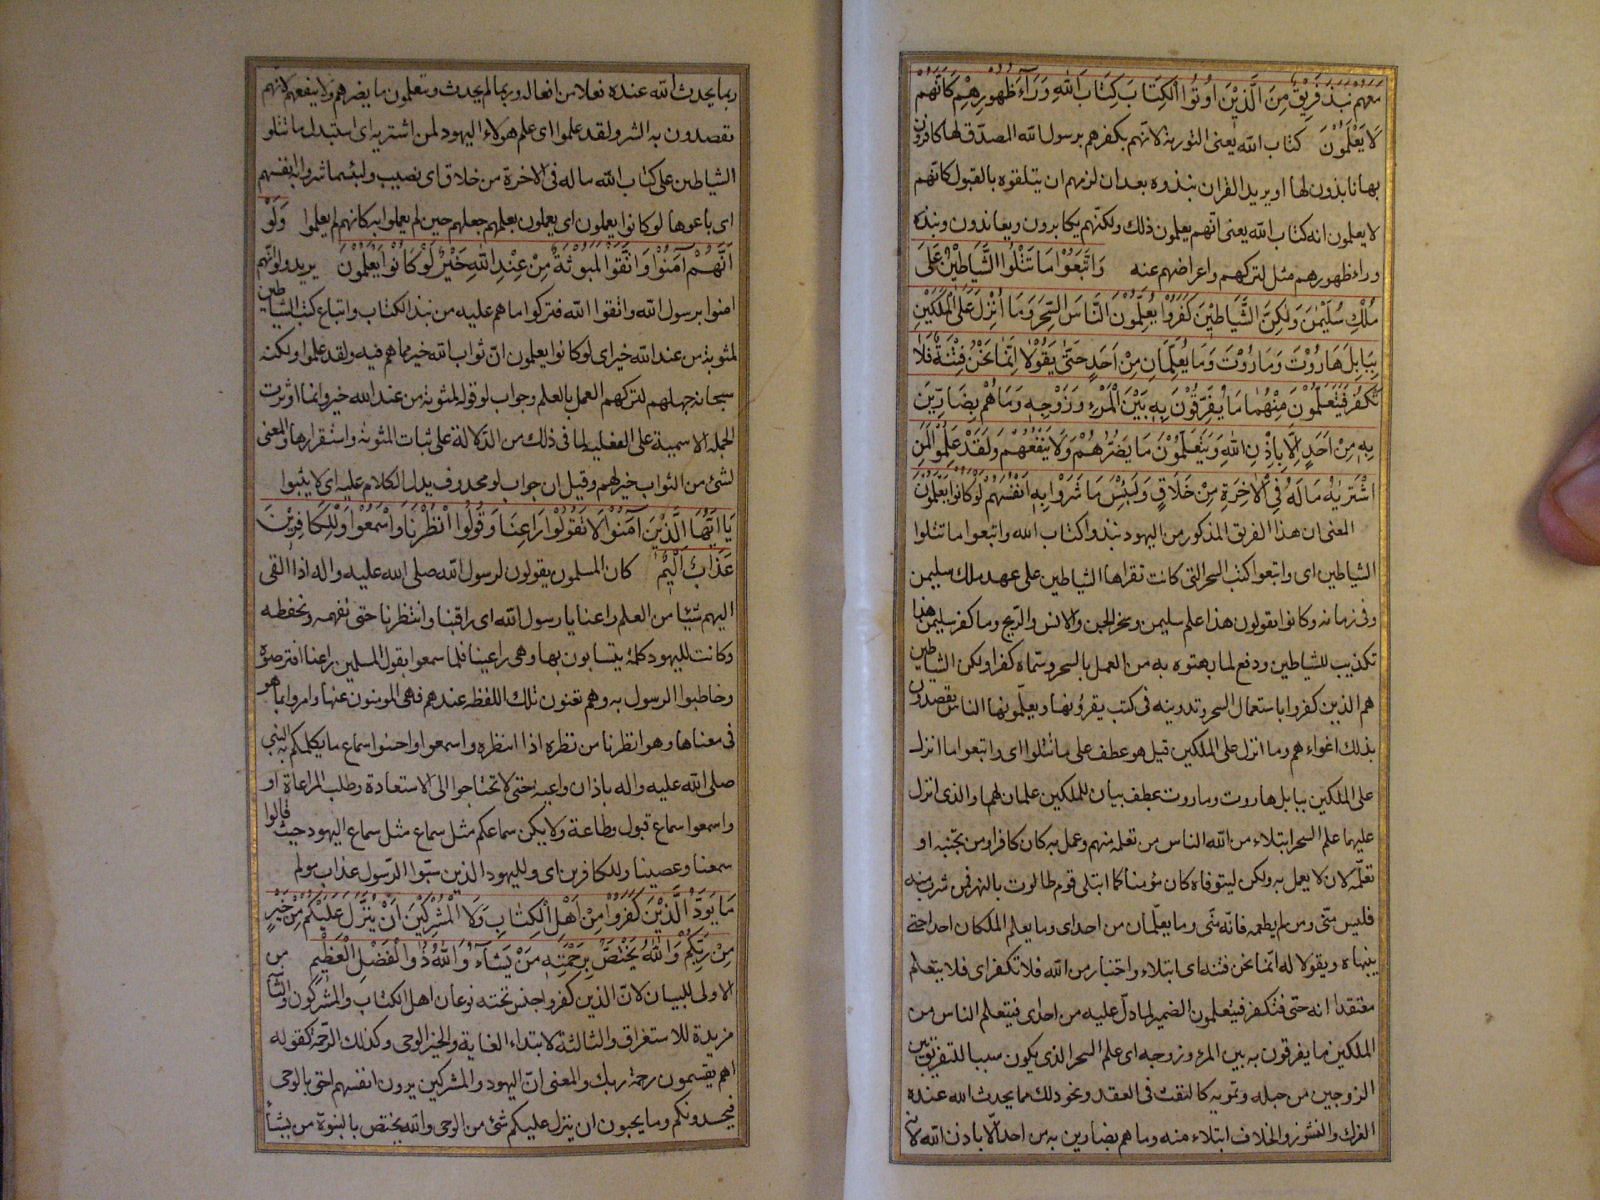 معهم نبذ فريق من الذين اوتوا الكتاب كتاب الله وراء ظهورهم كانهم
لا يعلمون كتاب الله يعنى التورية لانهم بكفرهم برسول الله المصدق لها كافرون
بها نابذون لها او يريد القران بنذوه بعد ان لزمهم ان يتلقوه بالقبول كانهم
لا يعلمون انه كتاب الله يعنى انهم يعلمون ذلك ولكنهم يكابرون ويعاندون ونبذه
وراء ظهورهم مثل لتركهم واعراضهم عنه واتبعوا ما تتلوا الشياطين على
ملك سليمن ولكن الشياطين كفروا يعلمون الناس السحر وما انزل على الملكين
ببابل هاروت وماروت وما يعلمان من احد حتى يقولا انما نحن فتنة فلا
تكفر فيتعلمون منهما ما يفرقون به بين المرء وزوجه وما هم بضارين
به من احد الا باذن الله ويتعلمون ما يضرهم ولا ينفعهم ولقد علموا لمن
اشتريه ما له فى الاخرة من خلاق ولبئس ما شروا به انفسهم لو كانوا يعلمون
المعنى ان هذا الفريق المذكور من اليهود نبذوا كتاب الله واتبعوا ما تتلوا
الشياطين اى واتبعوا كتب السحر التى كانت تقراها الشياطين على عهد ملك سليمن
وفى زمانه وكانوا يقولون هذا علم سليمن وبه سخر الجن والانس والريح وما كفر سليمن هذا
تكذيب للشياطين ودفع لما بهتوه به من العمل بالسحر وسماه كفرا ولكن الشياطين
هم الذين كفروا باستعمال السحر وتدوينه فى كتب يقرؤنها ويعلمونها الناس يقصدون
بذلك اغواءهم وما انزل على الملكين قيل هو عطف على ما تتلوا اى واتبعوا ما انزل
على الملكين ببابل هاروت وماروت عطف بيان للملكين علمان لهما والذى انزل
عليهما علم السحر ابتلاء من الله الناس من تعلمه منهم وعمل به كان كافرا ومن تجنبه او
تعلمه لان لا يعمل به ولكن ليتوقاه كان مؤمنا كما ابتلى قوم طالوت بالنهر فمن شرب منه
فليس منى ومن لم يطعمه فانه منى وما يعلمان من احد اى وما يعلم الملكان احدا حتى
ينبهاه ويقولا له انما نحن فتنة اى ابتلاء واختبار من الله فلا تكفر اى فلا يتعلم
معتقدا انه حق فتكفر فيتعلمون الضمير لما دل عليه من احد اى فيتعلم الناس من
الملكين ما يفرقون به بين المرء وزوجه اى علم السحر الذى يكون سببا للتفريق بين
الزوجين من حيله وتمويه كالنفث فى العقد ونحو ذلك مما يحدث الله عنده
الفرك والنشوز والخلاف ابتلاء منه وما هم بضارين به من احد الا باذن الله لانه
ربما يحدث الله عنده فعلا من افعاله وربما لم يحدث ويتعلمون ما يضرهم ولا ينفعهم لانهم
يقصدون به الشر ولقد علموا اى علم هؤلاء اليهود لمن اشتريه اى استبدل ما تتلو
الشياطين على كتاب الله ما له فى الاخرة من خلاق اى نصيب ولبئسما شروا به انفسهم
اى باعوها لو كانوا يعلمون اى يعملون بعلمهم جعلهم حين لم يعملوا به كانهم لم يعلموا ولو
انهم آمنوا واتقوا لمثوبة من عند الله خير لو كانوا يعلمون يريد ولو انهم
امنوا برسول الله واتقوا الله فتركوا ما هم عليه من نبذ الكتاب واتباع كتب الشياطين
لمثوبة من عند الله خير اى لو كانوا يعلمون ان ثواب الله خير مما هم فيه ولقد علموا ولكنه
سبحانه جهلهم لتركهم العمل بالعلم وجواب لو قوله لمثوبة من عند الله خير وانما اوثرت
الجملة الاسمية على الفعلية لما فى ذلك من الدلالة على ثبات المثوبة واستقرارها والمعنى
لشىء من الثواب خير لهم وقيل ان جواب لو محذوف يدل الكلام عليه اى لاثيبوا
يا ايها الذين آمنوا لا تقولوا راعنا وقولوا انظرنا واسمعوا وللكافرين
عذاب اليم كان المسلمون يقولون لرسول الله صلى الله عليه واله اذا القى
اليهم شيئا من العلم راعنا يا رسول الله اى راقبنا وانتظرنا حتى نفهمه ونحفظه
وكانت لليهود كلمة يتسابون بها وهى راعينا فلما سمعوا بقول المسلمين راعنا افترصوه
وخاطبوا الرسول به وهم يعنون تلك اللفظة عندهم فنهى المومنون عنها وامروا بما هو
فى معناها وهو انظرنا من نظره اذا انتظره واسمعوا واحسنوا سماع ما يكلمكم به النبى
صلى الله عليه واله باذان واعية حتى لا تحتاجوا الى الاستعادة وطلب المراعاة او
واسمعوا سماع قبول وطاعة ولا يكن سماعكم مثل سماع مثل سماع اليهود حيث قالوا
سمعنا وعصينا وللكافرين اى ولليهود الذين سبوا الرسول عذاب مولم
ما يود الذين كفروا من اهل الكتاب ولا المشركين ان ينزل عليكم من خير
من ربكم والله يختص برحمته من يشاء والله ذو الفضل العظيم من
الاولى للبيان لان الذين كفروا جنس تحته نوعان اهل الكتاب والمشركون والثانية
مزيدة للاستغراق والثالثة لابتداء الغاية والخير الوحى وكذلك الرحمة كقوله
اهم يقسمون رحمة ربك والمعنى ان اليهود والمشركين يرون انفسهم احق بالوحى
فيحسدونكم وما يحبون ان ينزل عليكم شىء من الوحى والله يختص بالنبوة من يشاء